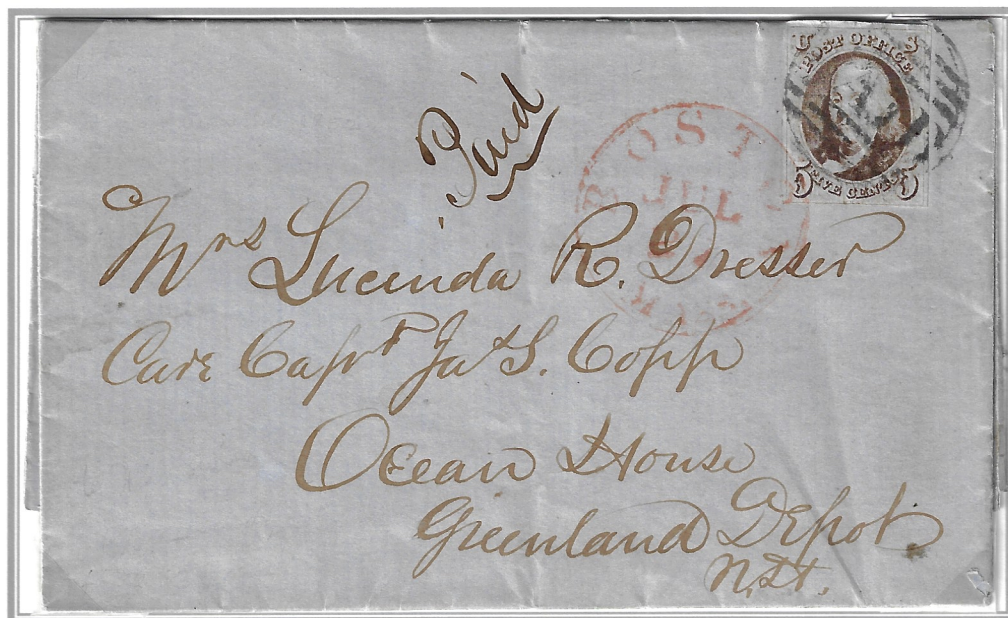 U S
POST OFFICE
5 FIVE CENTS 5
Paid
BOSTON
JUL
MAS
Mrs Lucinda R. Dresser
Care Capt Jas S. Copp
Ocean House
Greenland Depot
N.H.